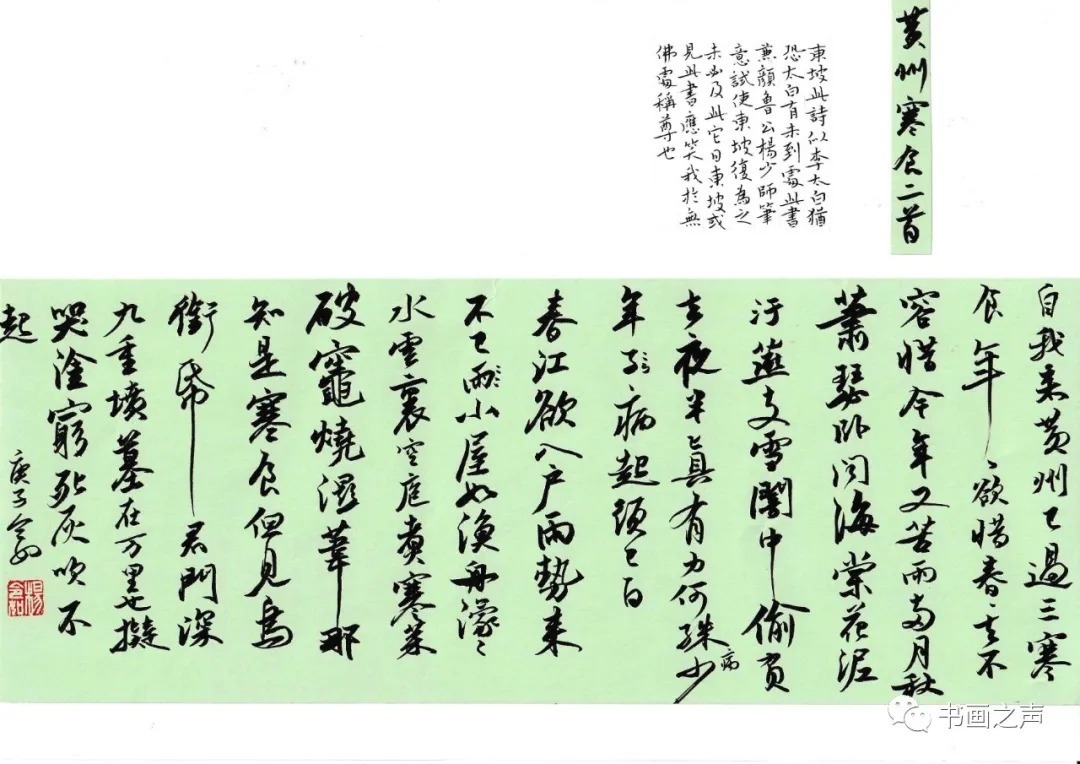 黄州寒食二首
東坡此詩似李太白猶
恐太白有未到處此書
兼顏魯公楊少師筆
意試使東坡復為之
未必及此它日東坡或
見此書應笑我於無
佛處稱尊也
自我来黄州已過三寒
食年〻欲惜春春去不
容惜今年又苦雨兩月秋
蕭瑟卧聞海棠花泥
汙燕支雪闇中偷負
去夜半真有力何殊少
病
年子病起頭已白
春江欲入户雨勢来
不已雨小屋如漁舟濛〻
水雲裏空庖煮寒菜
破竈燒濕葦那
知是寒食但見烏
銜帋君門深
九重墳墓在万里也擬
哭塗窮死灰吹不
起
庚子
书画之声